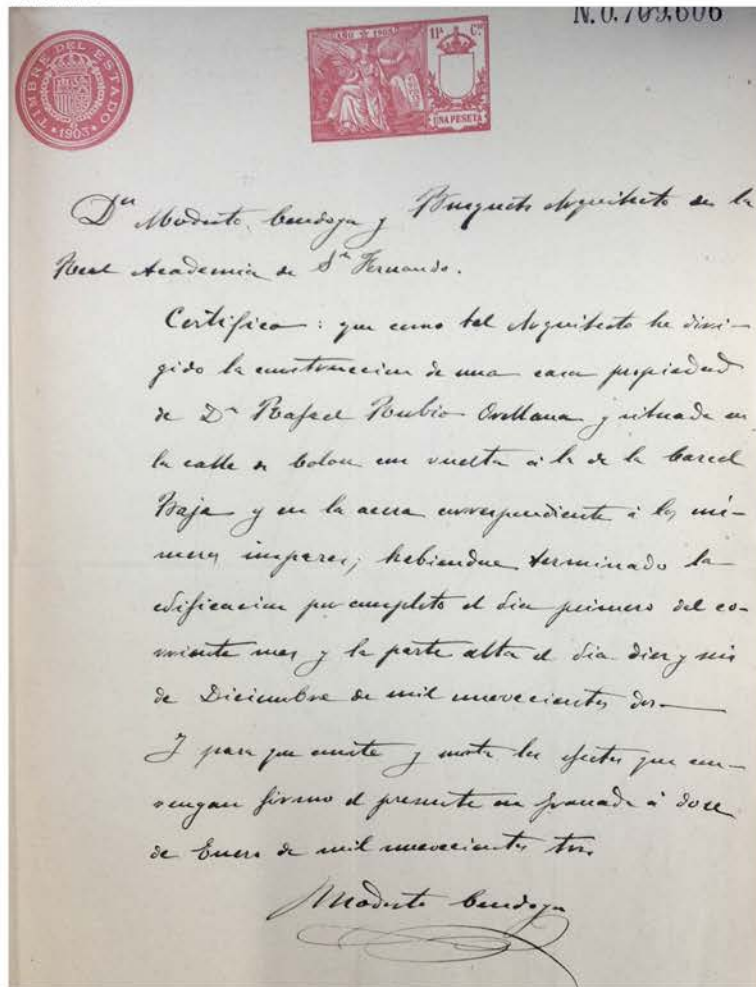 N.0.709.606
TIMBRE DEL ESTADO
1903
AÑO 1903
11ª Cˢᵉ
UNA PESETA
Dⁿ Modesto Cendoya y Busquets Arquitecto de la
Real Academia de Sⁿ Fernando.
Certifico: que como tal Arquitecto he diri-
gido la construccion de una casa propiedad
de Dⁿ Rafael Rubio Orellana y situada en
la calle de Colon con vuelta á la de la Carcel
Baja y en la acera correspondiente á los nú-
meros impares; habiendose terminado la
edificacion por completo el dia primero del co-
rriente mes y la parte alta el dia diez y seis
de Diciembre de mil nuevecientos dos—
Y para que conste y surta los efectos que con-
vengan firmo el presente en Granada á doce
de Enero de mil nuevecientos tres
Modesto Cendoya